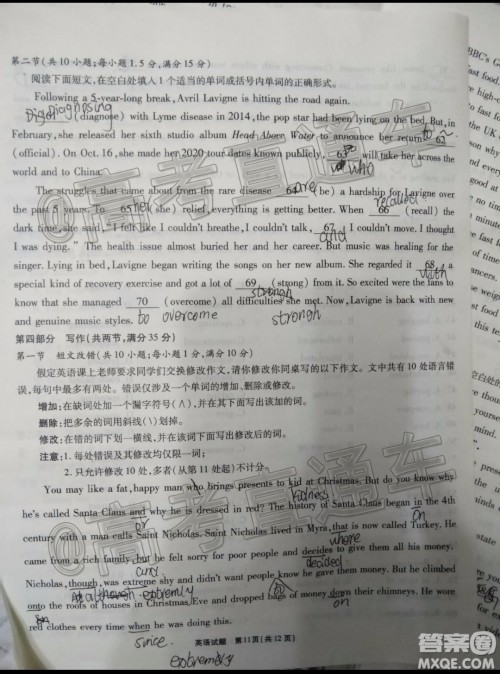 第二节(共10小题;每小题1.5分,满分15分)
阅读下面短文,在空白处填入1个适当的单词或括号内单词的正确形式。
Following a 5-year-long break, Avril Lavigne is hitting the road again.
Diagnosing
(diagnose) with Lyme disease in 2014, the pop star had been lying on the bed. But, in
February, she released her sixth studio album Head Above Water to announce her return 62
to
(official). On Oct. 16, she made her 2020 tour dates known publicly, 63 will take her across
who
the world and to China.
The struggles that came about from the rare disease 64 (be) a hardship for Lavigne over
are
the past 5 years. To 65 (she) relief, everything is getting better. When 66 (recall) the
her
recalled
dark time, she said, "I felt like I couldn't breathe, I couldn't talk, 67 I couldn't move. I thought
and
I was dying." The health issue almost buried her and her career. But music was healing for the
singer. Lying in bed, Lavigne began writing the songs on her new album. She regarded it 68 a
with
special kind of recovery exercise and got a lot of 69 (strong) from it. So excited were the fans to
know that she managed 70 (overcome) all difficulties she met. Now, Lavigne is back with new
and genuine music styles.
to overcome
strongh
第四部分 写作(共两节,满分35分)
第一节 短文改错(共10小题;每小题1分,满分10分)
假定英语课上老师要求同学们交换修改作文,请你修改你同桌写的以下作文。文中共有10处语言错
误,每句中最多有两处。错误仅涉及一个单词的增加、删除或修改。
增加:在缺词处加一个漏字符号(∧),并在其下面写出该加的词。
删除:把多余的词用斜线(\)划掉。
修改:在错的词下划一横线,并在该词下面写出修改后的词。
注意:1.每处错误及其修改均仅限一词;
2.只允许修改10处,多者(从第11处起)不计分。
You may like a fat, happy man who brings presents to kid at Christmas. But do you know why
he's called Santa Claus and why he is dressed in red? The history of Santa Claus began in the 4th
or
on
century with a man calls Saint Nicholas. Saint Nicholas lived in Myra, that is now called Turkey. He
where
came from a rich family, but he felt sorry for poor people and decides to give them all his money.
decided
Nicholas, though, was extreme shy and didn't want people know he gave them money. But he climbed
although
extremely
onto the roofs of houses in Christmas Eve and dropped bags of money down their chimneys. He wore
on
red clothes every time when he was doing this.
since.
extremely
英语试题 第11页(共12页)
@高考直通车
@高考直通车
答案圈
MXQE.COM